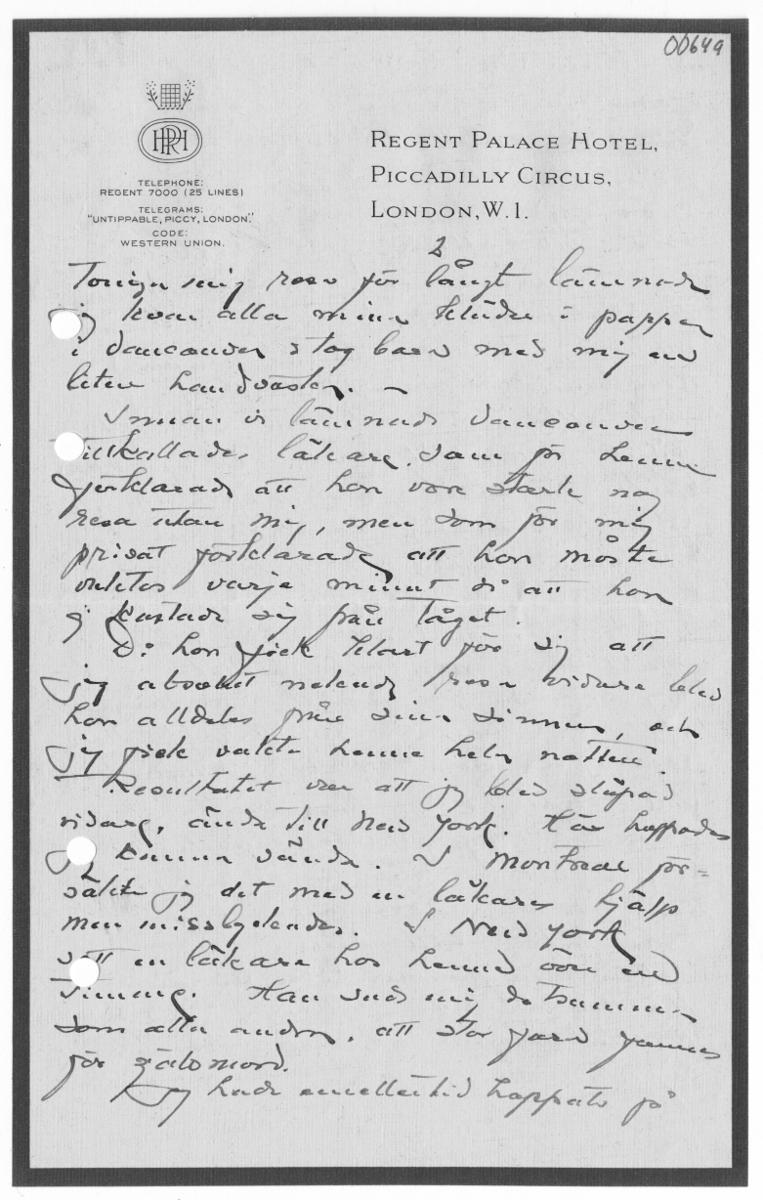 00649
HRPH
TELEPHONE:
REGENT 7000 (25 LINES)
TELEGRAMS:
"UNTIPPABLE, PICCY, LONDON."
CODE:
WESTERN UNION.
REGENT PALACE HOTEL,
PICCADILLY CIRCUS,
LONDON, W.1.
2
mig resa för långt lämnade
jag kvar alla mina kläder i papper
i Vancouver & tog bara med mig en
liten handväska. –
Innan vi lämnade Vancouver
tillkallades läkare, som för henne
förklarade att hon vore stark nog
resa utan mig, men som för mig
privat förklarade att hon måste
vaktas varje minut så att hon
ej kastade sig från tåget.
Då hon fick klart för sig att
jag absolut nekade resa vidare blev
hon alldeles från sina sinnen, och
jag fick vakta henne hela natten.
Resultatet var att jag blev släpad
vidare, ända till New York. Här hoppades
jag kunna vända. I Montreal för=
sökte jag det med en läkares hjälp
men misslyckades. I New York
satt en läkare hos henne över en
timme. Han sade mig detsamma
som alla andra, att stor fara fanns
för självmord.
Jag hade emellertid hoppats på